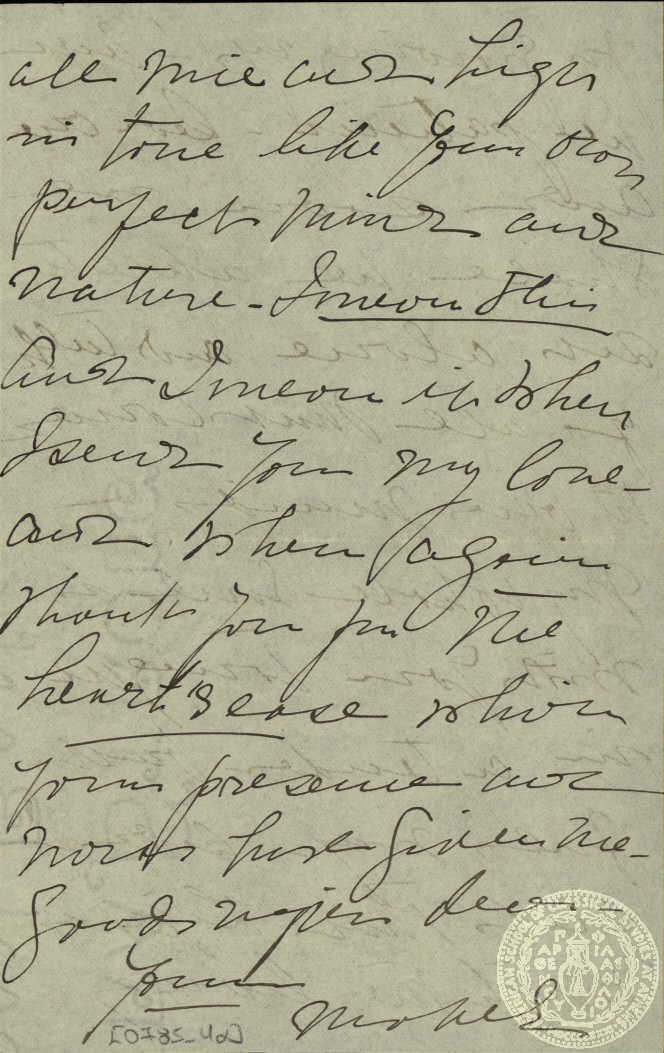 all nice and high
in tone like your own
perfect mind and
nature - I mean this
and I mean it when
I send you my love -
and when again
thank you for the
heart's ease which
your presence and
words have given me -
Good night dear
Your
Mabel